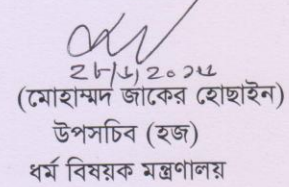 (মোহাম্মদ জাকের হোছাইন)
উপসচিব (হজ)
ধর্ম বিষয়ক মন্ত্রণালয়